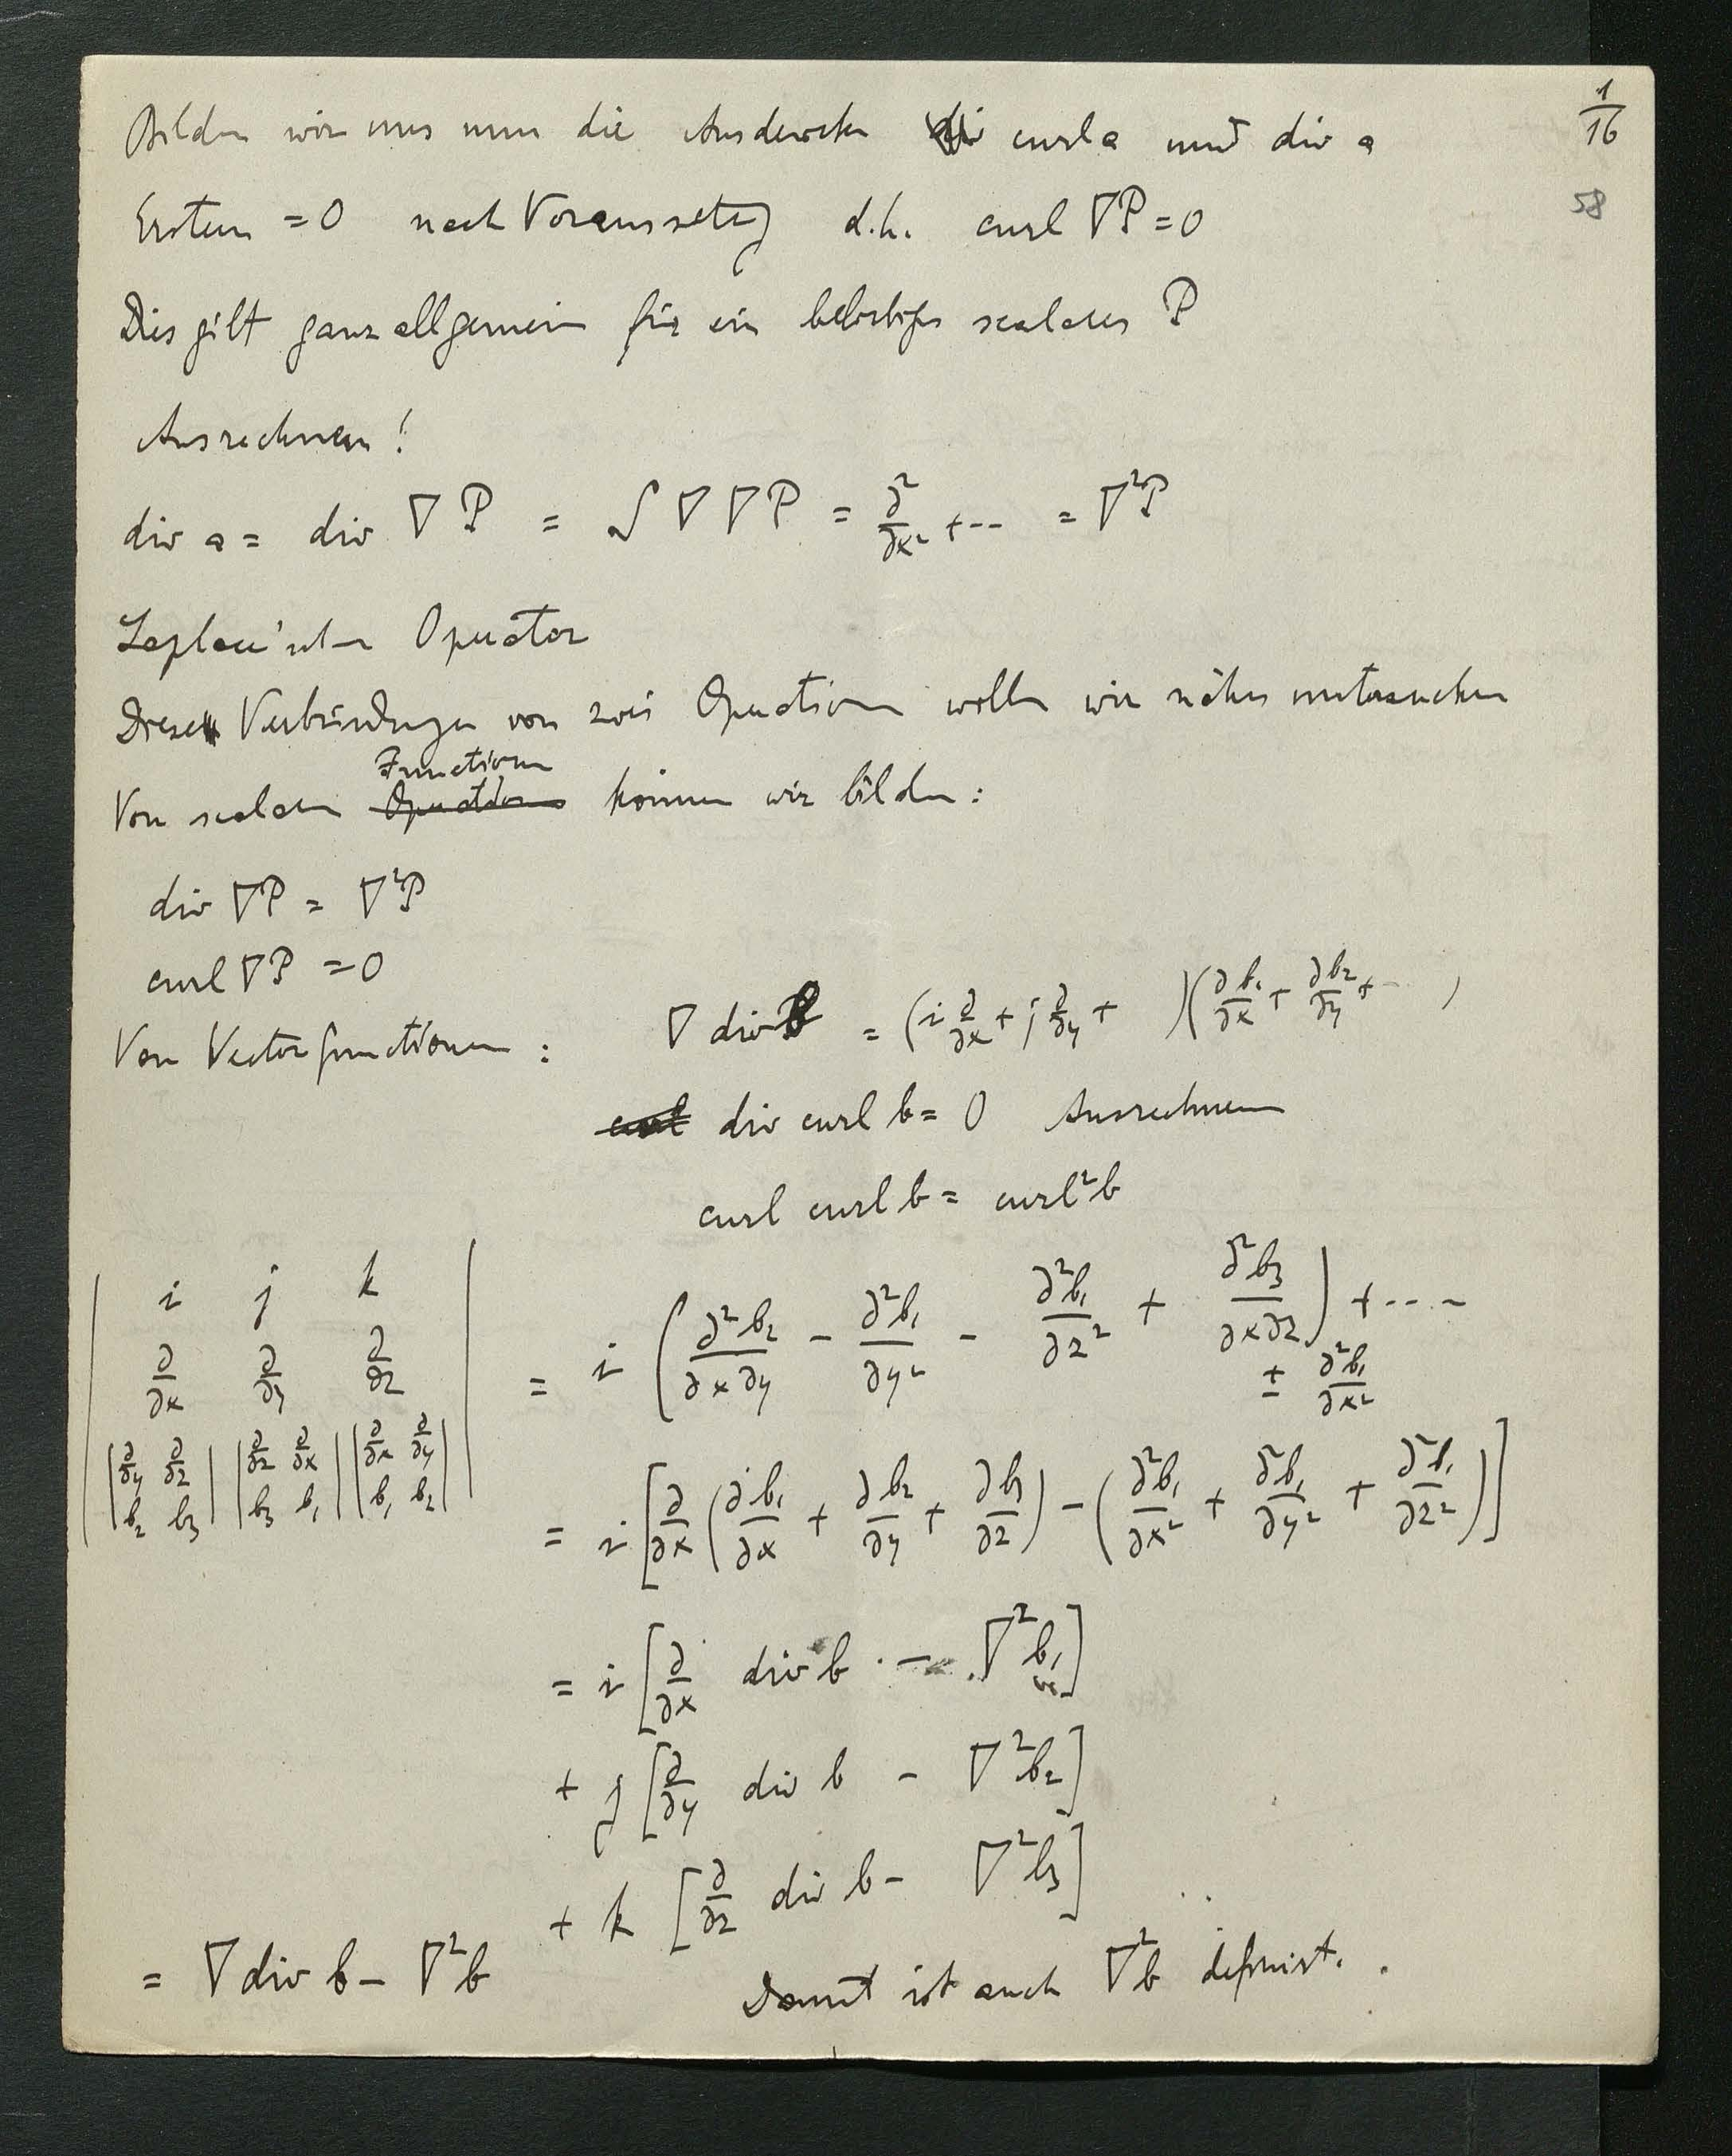 1/16
58
Bilden wir uns nun die Ausdrücke curl a und div a
Ersteres = 0 nach Voraussetzg d.h. curl ∇P = 0
Dies gilt ganz allgemein für ein beliebiges scalares P
Ausrechnen!
div a = div ∇ P = S ∇ ∇ P = ∂²/∂x² + -- = ∇²P
Laplace'scher Operator
Diese Verbindungen von zwei Operationen wollen wir näher untersuchen
Functionen
Von scalaren Operationen können wir bilden:
div ∇P = ∇²P
curl ∇P = 0
Von Vectorfunctionen : ∇ div b = (i ∂/∂x + j ∂/∂y + )(∂b₁/∂x + ∂b₂/∂y + -- )
curl div curl b = 0 Ausrechnen
curl curl b = curl²b
| i j k |
| ∂/∂x ∂/∂y ∂/∂z |
| |∂/∂y ∂/∂z| |∂/∂z ∂/∂x| |∂/∂x ∂/∂y| |
| |b₂ b₃| |b₃ b₁| |b₁ b₂| |
= i (∂²b₂/∂x∂y - ∂²b₁/∂y² - ∂²b₁/∂z² + ∂²b₃/∂x∂z) + ----
± ∂²b₁/∂x²
= i [∂/∂x (∂b₁/∂x + ∂b₂/∂y + ∂b₃/∂z) - (∂²b₁/∂x² + ∂²b₁/∂y² + ∂²b₁/∂z²)]
= i [∂/∂x div b - ∇²b₁]
+ j [∂/∂y div b - ∇²b₂]
+ k [∂/∂z div b - ∇²b₃]
= ∇ div b - ∇²b Damit ist auch ∇²b definirt.